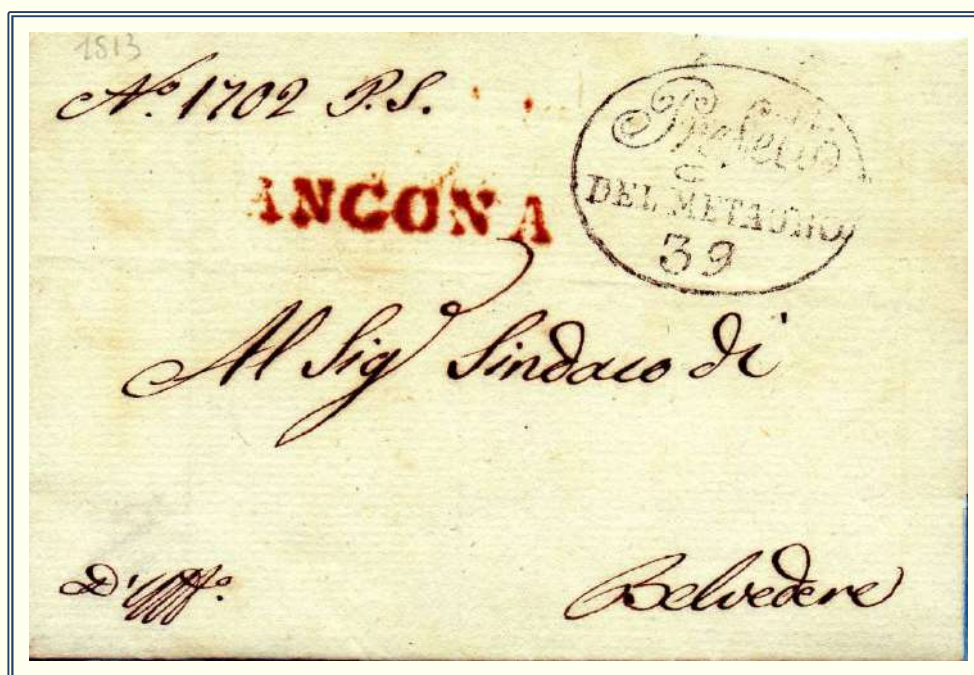 1813
N.º 1702 P.S.
ANCONA
Prefetto
DEL METAURO
39
Al Sigʳ Sindaco di
D'Uffº.
Belvedere